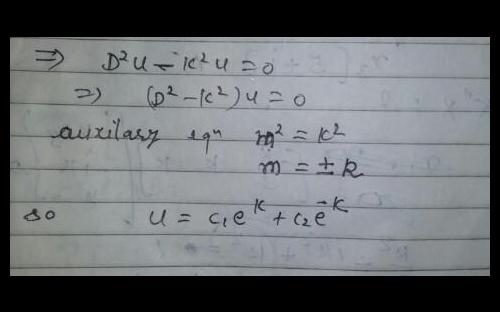 ⇒ D²u - K²u = 0
⇒ (D² - K²)u = 0
auxilary eqⁿ m² = K²
m = ± k
so u = c₁e^K + c₂e^-K